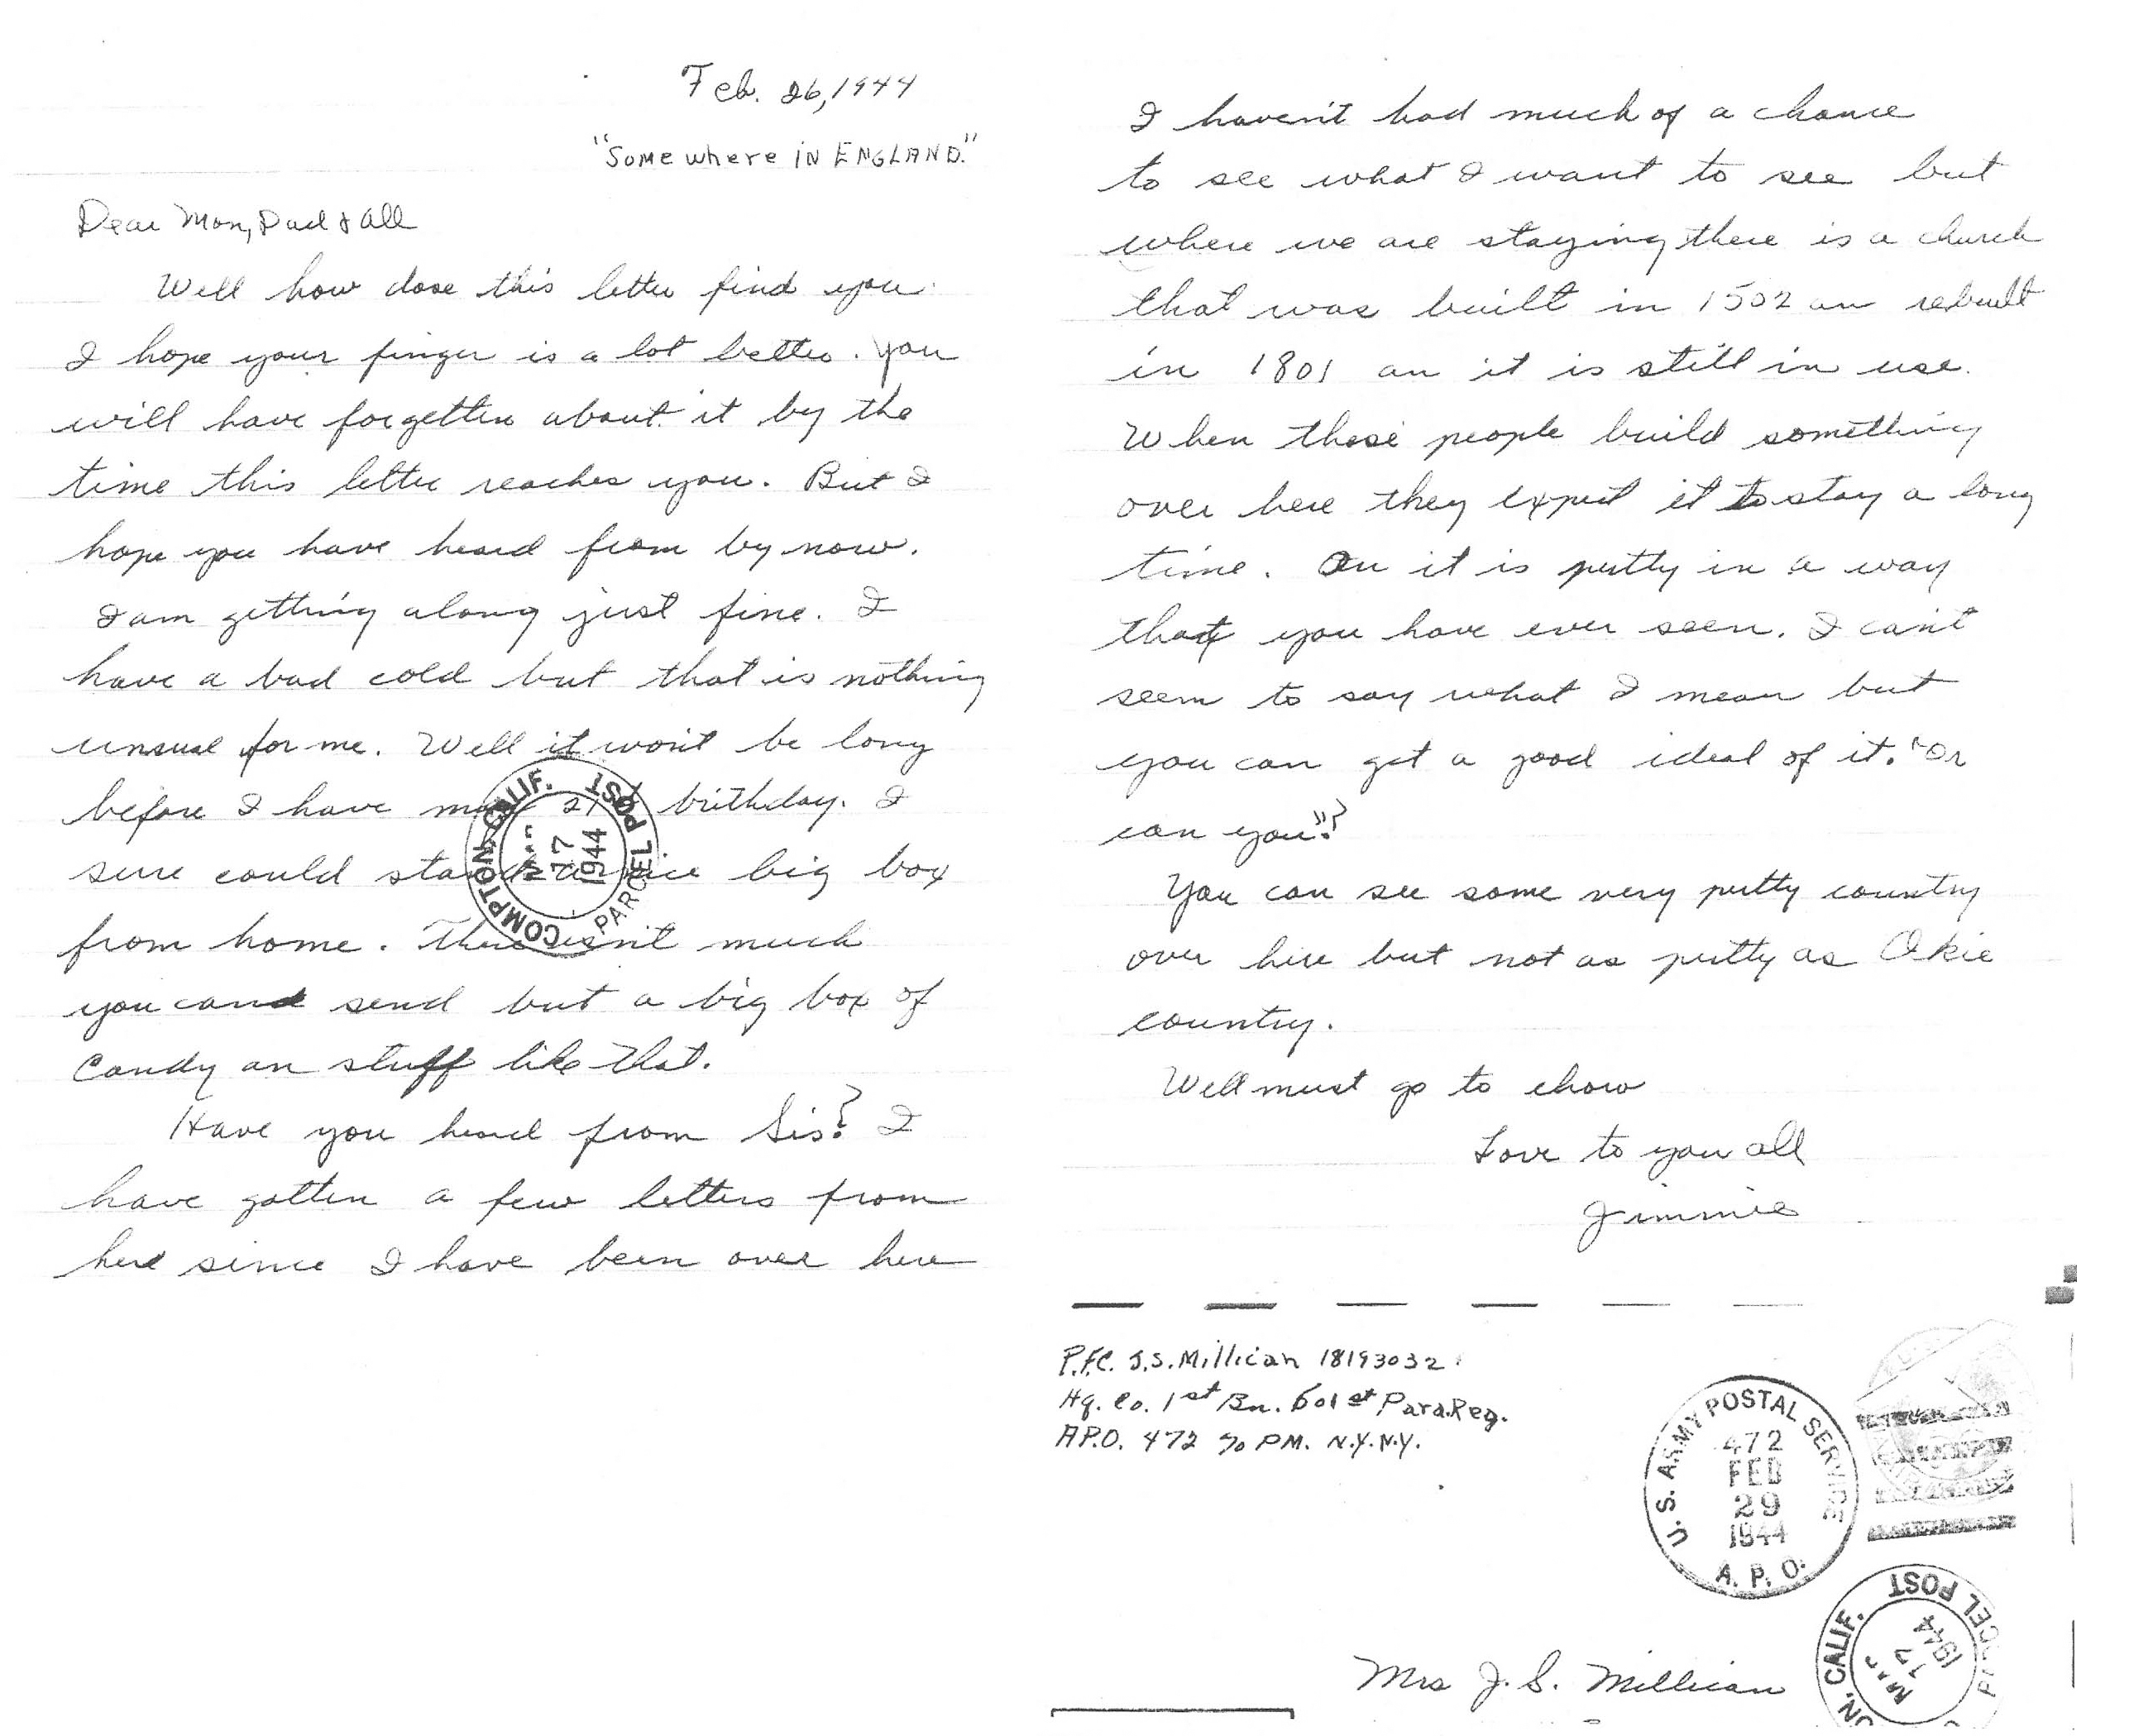 Feb. 26, 1944
"Somewhere IN ENGLAND."
Dear Mom, Dad & All
Well how dose this letter find you.
I hope your finger is a lot better. you
will have forgetten about it by the
time this letter reaches you. But I
hope you have heard from by now.
I am getting along just fine. I
have a bad cold but that is nothing
unsual for me. Well it won't be long
before I have my 21 birthday. I
sure could stand a nice big box
from home. There isn't much
you can send but a big box of
Candy an stuff like that.
Have you heard from Sis? I
have gotten a few letters from
her since I have been over here
COMPTON, CALIF.
17
1944
PARCEL POST
I haven't had much of a chance
to see what I want to see but
where we are staying there is a church
that was built in 1502 an rebuilt
in 1801 an it is still in use.
When these people build something
over here they expect it to stay a long
time. An it is putty in a way
that you have ever seen. I can't
seem to say what I mean but
you can get a good ideal of it. "Or
can you"?
You can see some very putty country
over here but not as putty as Okie
country.
Well must go to chow
Love to you all
Jimmie
P.F.C. J.S. Millican 18193032
Hq. Co. 1st Bn. 501st Para.Reg.
A.P.O. 472 % PM. N.Y. N.Y.
U.S. ARMY POSTAL SERVICE
472
FEB
29
1944
A. P. O.
Mrs J. S. Millican
ON, CALIF.
17
1944
PARCEL POST